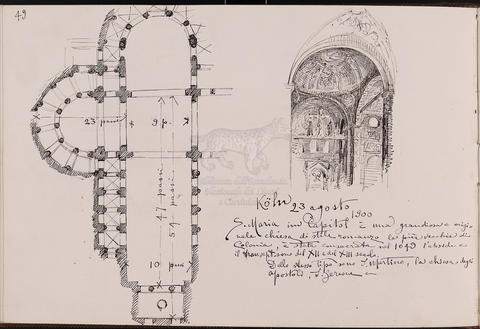 49
23 passi
9 p.
47 passi
54 passi
10 passi
Köln 23 agosto
1900
S. Maria im Capitol è una grandiosa e origi-
nale chiesa di stile romanzo la più vecchia di
Colonia, è stata consacrata nel 1049 l'abside e
il transept sono del XII e del XIII secolo.
Dello stesso tipo sono S. Martino, la chiesa degli
apostoli, S. Gereone